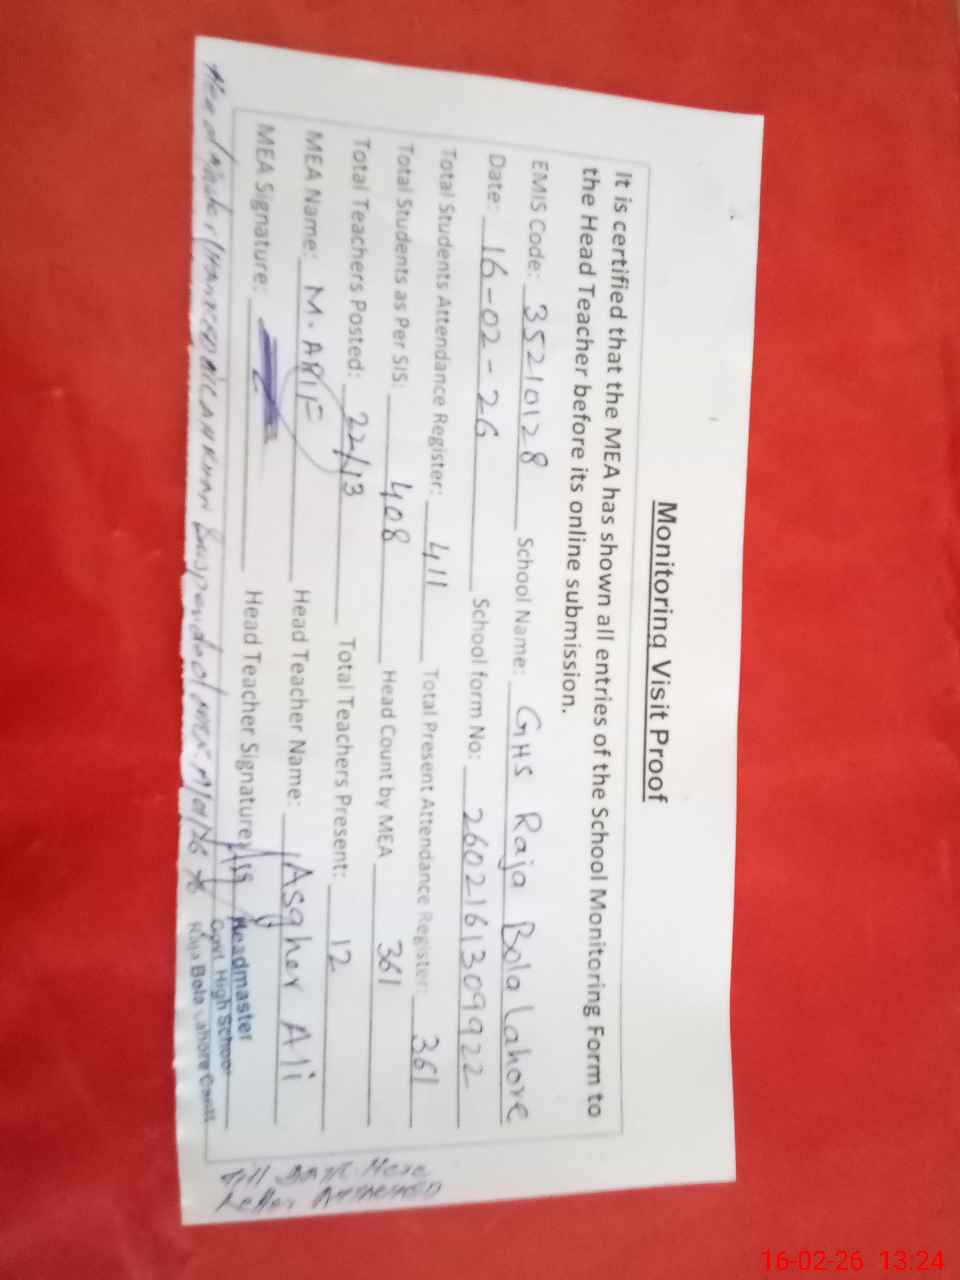 Monitoring Visit Proof
It is certified that the MEA has shown all entries of the School Monitoring Form to
the Head Teacher before its online submission.
EMIS Code: 35210128 School Name: GHS Raja Bola Lahore
Date: 16-02-26 School form No: 2602161309922
Total Students Attendance Register: 411 Total Present Attendance Register: 361
Total Students as Per SIS: 408 Head Count by MEA 361
Total Teachers Posted: 22/13 Total Teachers Present: 12
MEA Name: M. ARIF Head Teacher Name: Asgher Ali
MEA Signature: Head Teacher Signature:
Headmaster
Govt. High School
Raja Bola Lahore Cantt
Till
Letter
16-02-26 13:24